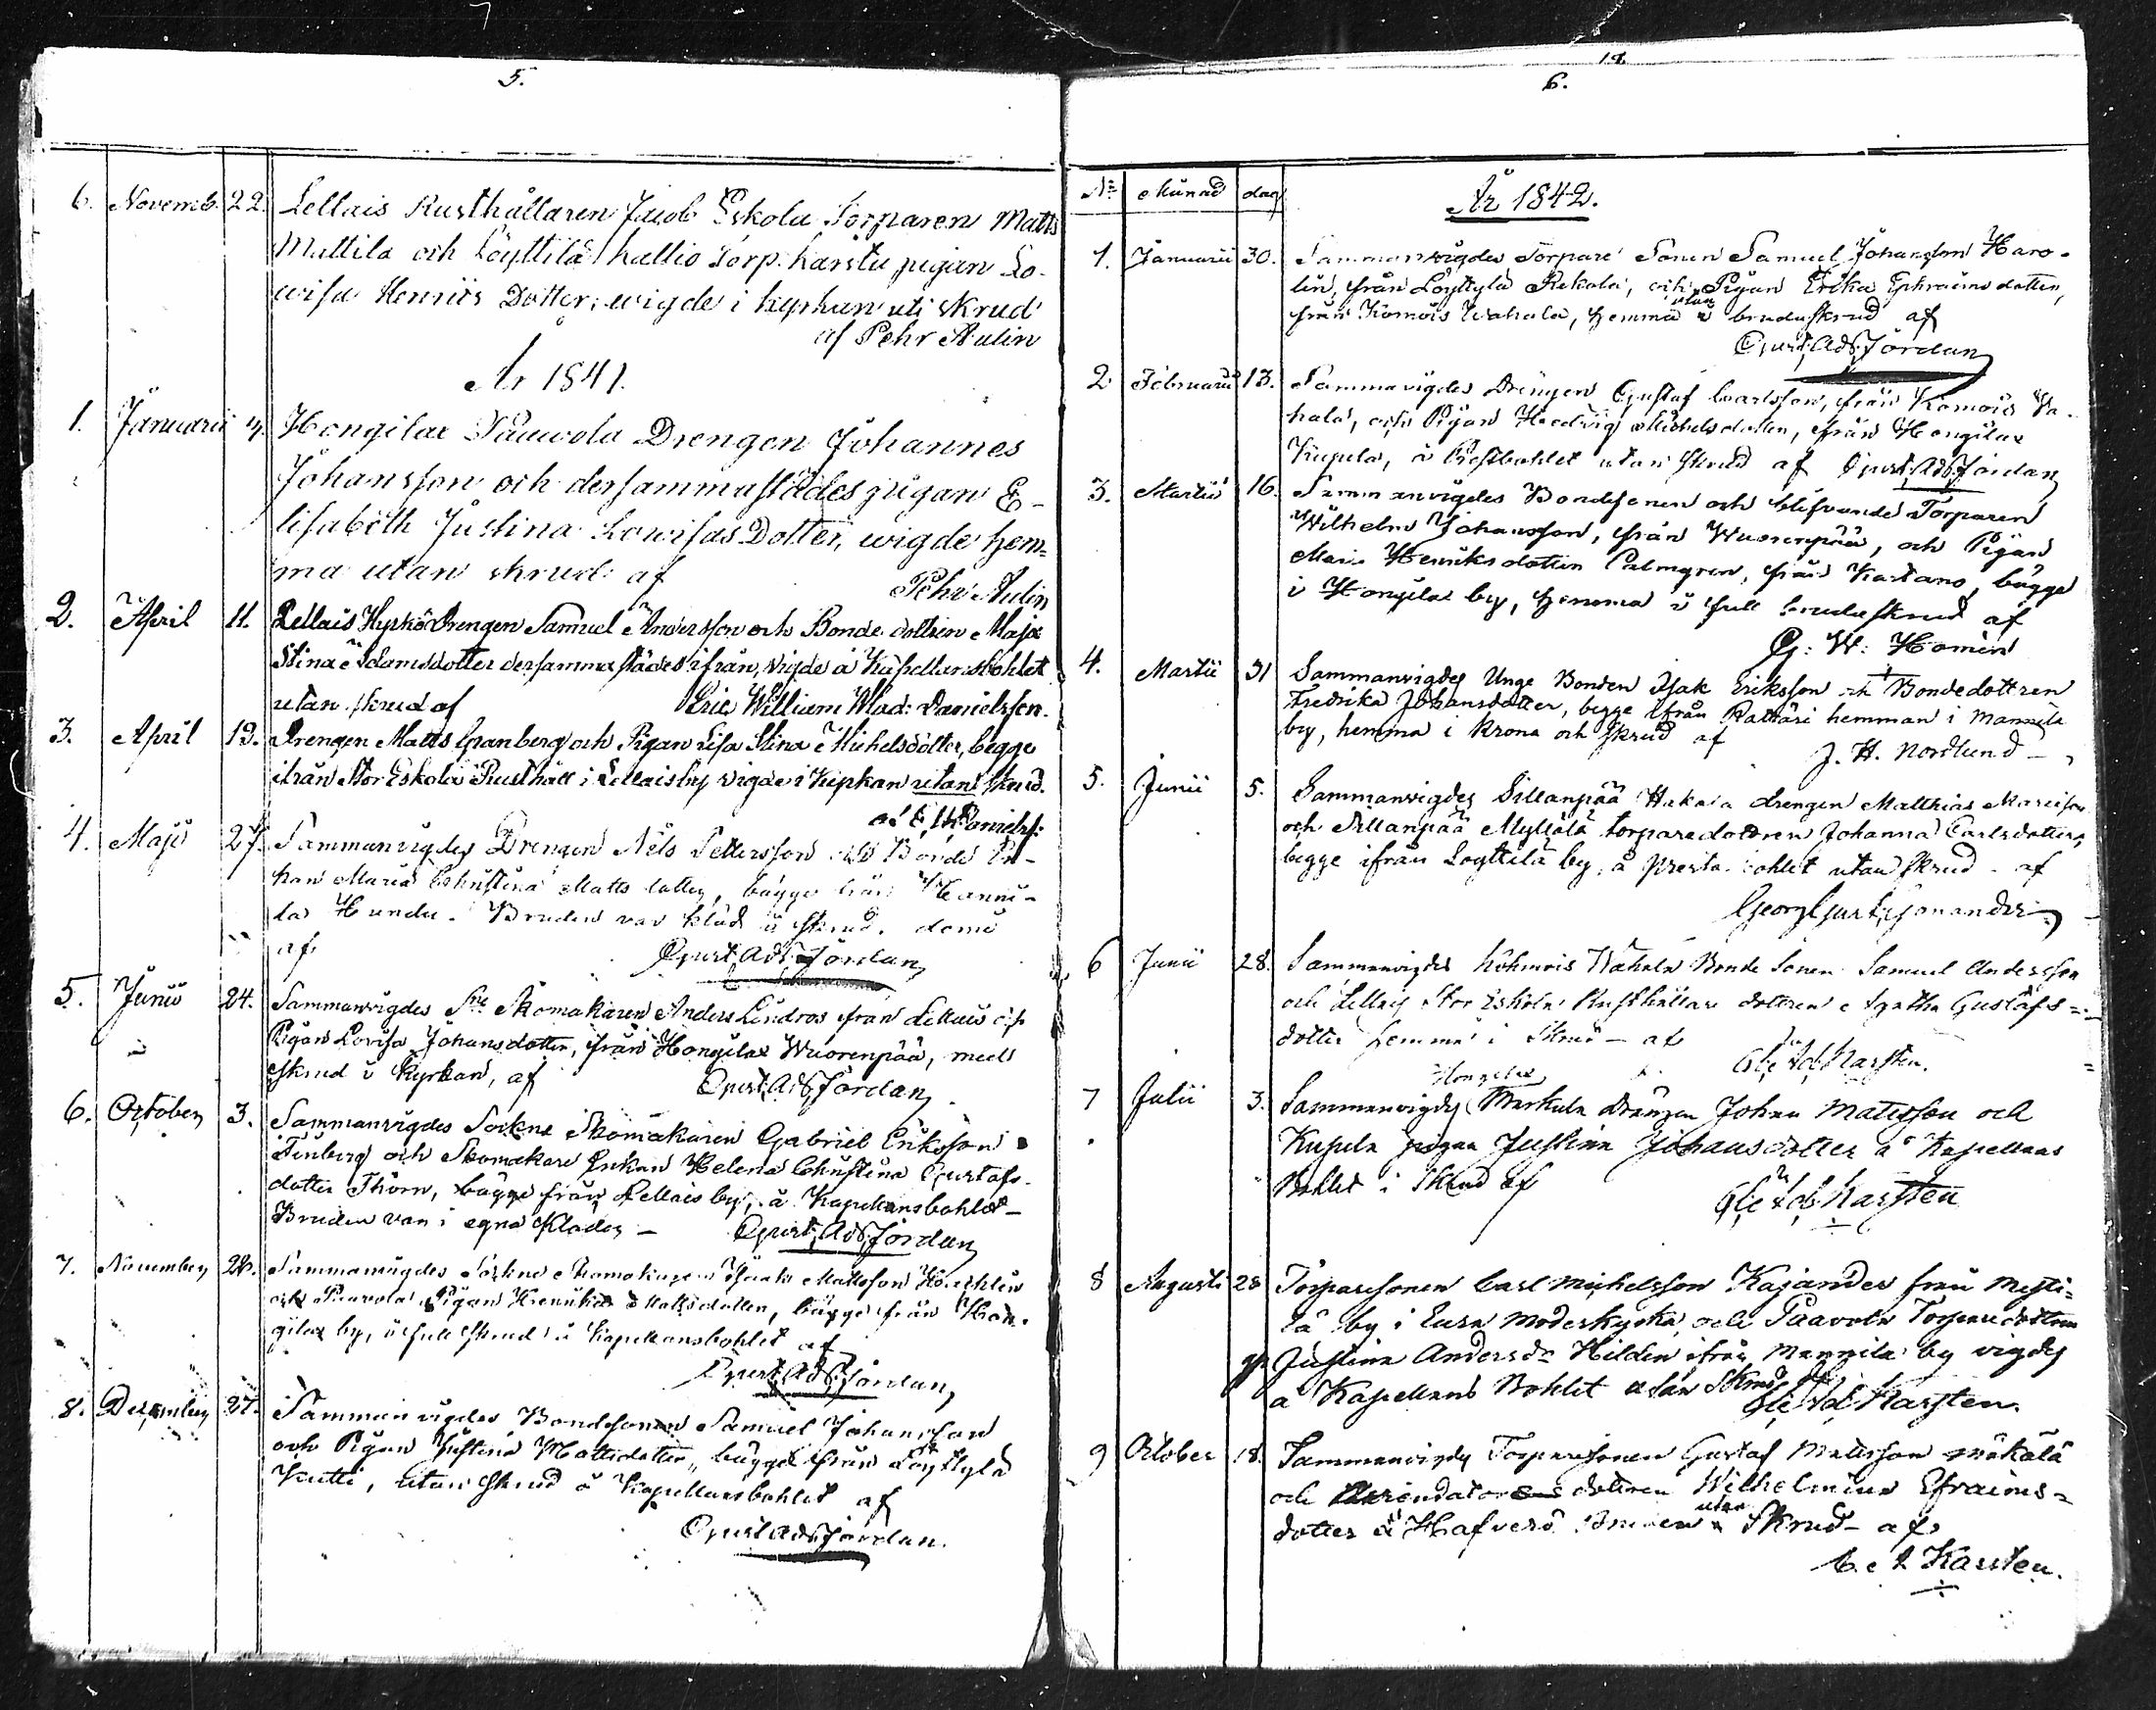 5.
6. Novemb. 22. Lellais Rusthållaren Jacob Eskola Torparen Matts
Mattila och Löyttilä Kallio Torp. Karstu pigan Lo-
wisa Henrics Dotter, wigde i kyrkan uti skrud
af Pehr Aulin
År 1841.
1. Januarii 4. Hongilax Påuwola Drengen Johannes
Johansson och dersammastädes pigan E-
lisabeth Justina Lowisas Dotter, wigde hem-
ma utan skrud af
Pehr Aulin
2. April 11. Lellais Kyrkö Drengen Samuel Andersson och Bonde dottren Maja
Stina Adamsdotter dersammastädes ifrån, vigde å Kapellansbohlet
utan skrud af Eric William Wlad: Danielsson.
3. April 19. Drengen Matts Granberg och Pigan Lisa Stina Michelsdotter, begge
ifrån Stor Eskola Rusthåll i Lellais by vigde i Kyrkan utan skrud.
af E. W. Daniels:
4. Maji 27. Sammanvigdes Drengen Nils Pettersson och Bonde En-
kan Maria Christina Mattsdotter, bägge från Hannu-
la Hundu. Bruden var klädd i skrud.
af Gust: Ad: Jordan
5. Junii 24. Sammanvigdes Sne Skomakaren Anders Lindros från Lellais och
Pigan Lovisa Johansdotter, från Hongilax Wuorenpää, med
skrud i Kyrkan, af Gust: Ad: Jordan
6. October 3. Sammanvigdes Sockne Skomakaren Gabriel Eriksson
Finberg och Skomakare Enkan Helena Christina Gustafs-
dotter Thörn, bägge från Lellais by, å Kapellansbohlet
Bruden var i egna kläder – Gust: Ad: Jordan
7. November 28. Sammanvigdes Sockne Skomakaren Isaak Mattsson
och Paavola Pigan Henrika Mattsdotter, bägge från Hon-
gilax by, i full skrud å Kapellansbohlet af
Gust: Ad: Jordan
8. December 27. Sammanvigdes Bondesonen Samuel Johansson
och Pigan Justina Mattsdotter, bägge från Löyttylä
Kutti, utan skrud å Kapellansbohlet af
Gust Ad: Jordan.
6.
No Månad dag År 1842.
1. Januarii 30. Sammanvigdes Torpare Sonen Samuel Johansson Haro-
lin, från Löyttylä Rekola, och Pigan Erika Ephraimsdotter,
från Komois Wahala, hemma utan brudskrud af
Gust: Ad: Jordan
2 Februarii 13. Sammanvigdes Drengen Gustaf Carlsson, från Komois Wa-
hala, och Pigan Hedvig Michelsdotter, från Hongilax
Kupula, å Prestbohlet utan skrud af Gust: Ad: Jordan
3. Martii 16. Sammanvigdes Bondsonen och blifvande Torparen
Wilhelm Johansson, från Wuorenpää, och Pigan
Maria Henriksdotter Palmgren, från Kartano, bägge
i Hongilax by, hemma i full brudskrud af
G: W: Homén
4. Martii 31 Sammanvigdes Unge Bonden Isak Eriksson och Bondedottren
Fredrika Johansdotter, begge ifrån Raitkäri hemman i Mannila
by, hemma i krona och skrud af J. H. Nordlund –
5. Junii 5. Sammanvigdes Sillanpää Hakala drengen Matthias
och Sillanpää Myllölä torparedottren Johanna Carlsdotter,
begge ifrån Loyttilä by, å Presta bohlet utan skrud af
Georg Gust:
6 Junii 28. Sammanvigdes Köhmois Wahala Bonde Sonen Samuel Andersson
och Lellais Stor Eskola Rusthållare dottren Agatha Gustafs=
dotter hemma i Skrud – af
Karsten.
7 Julii 3. Sammanvigdes Hongilax Markula drängen Johan Matsson och
Kupula pigan Justina Johansdotter å Kapellans
Bohlet i Skrud af
Karsten
8 Augusti 28 Torparesonen Carl Michelsson Kajander från Mesti=
lä by i Eura Moderkyrka och Paavola Torparedottren
Justina Andersdr Hilden ifrån Mannila by vigdes
å Kapellans Bohlet utan Skrud af
Karsten.
9 October 18. Sammanvigdes Torparesonen Gustaf Mattsson Mäkälä
och Arendators dottren Wilhelmina Efraims=
dotter å Hafverö Bruden utan Skrud – af
Karsten.